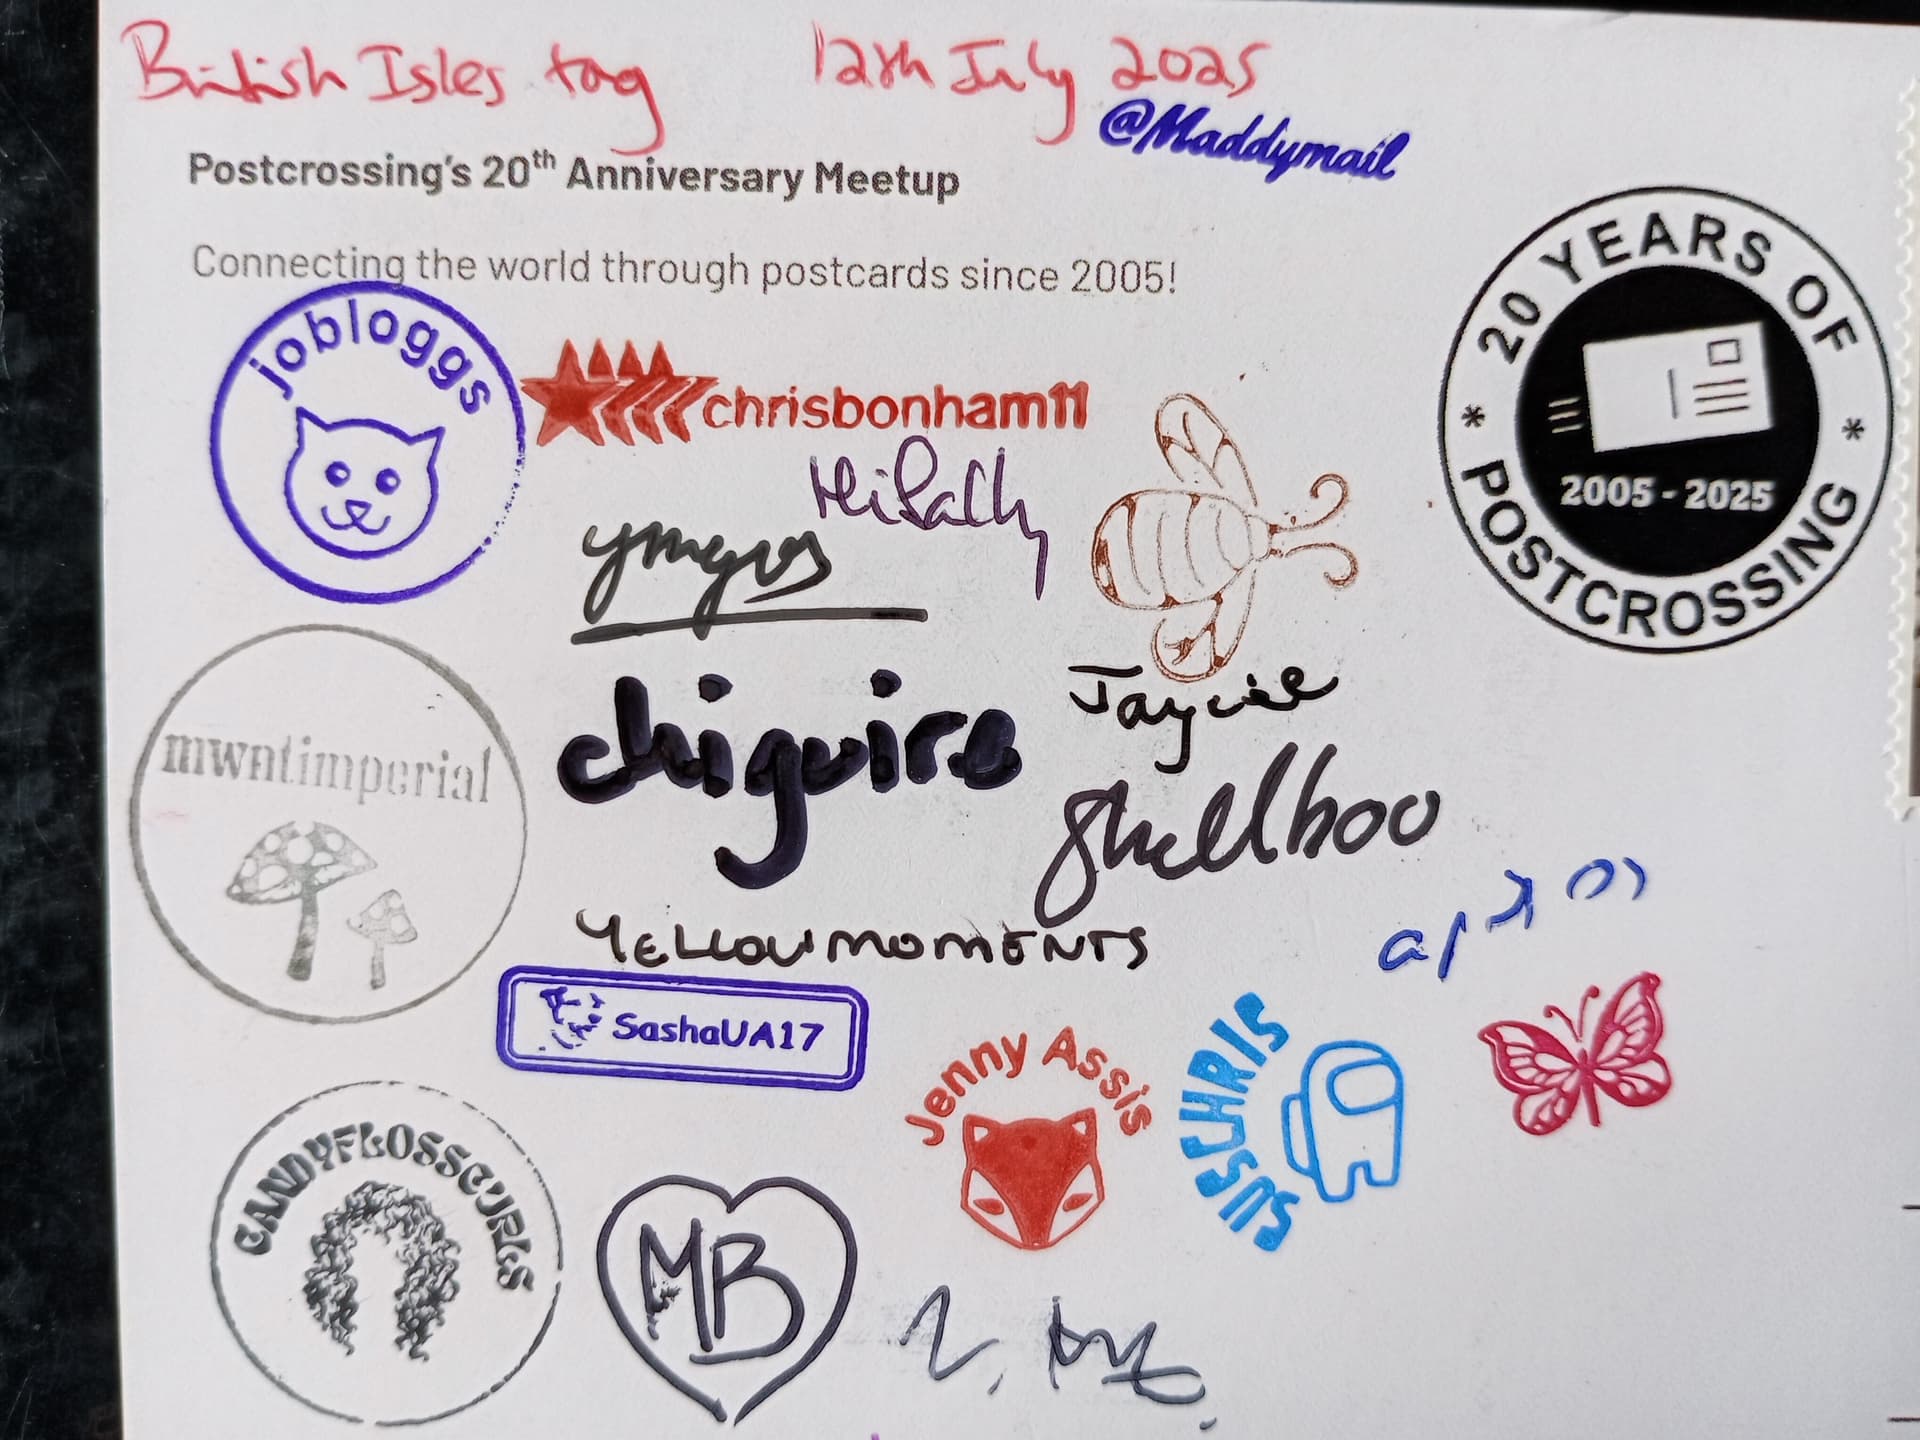 British Isles tag 12th July 2025
@Maddymail
Postcrossing's 20th Anniversary Meetup
Connecting the world through postcards since 2005!
20 YEARS OF
* POSTCROSSING *
2005 - 2025
jobloggs
chrisbonham11
HiSally
mwntimperial
chiguire
Jaycie
shellboo
YELLOWMOMENTS
SashaUA17
Jenny Assis
SUSCHRIS
CANDYFLOSSCURLS
MB